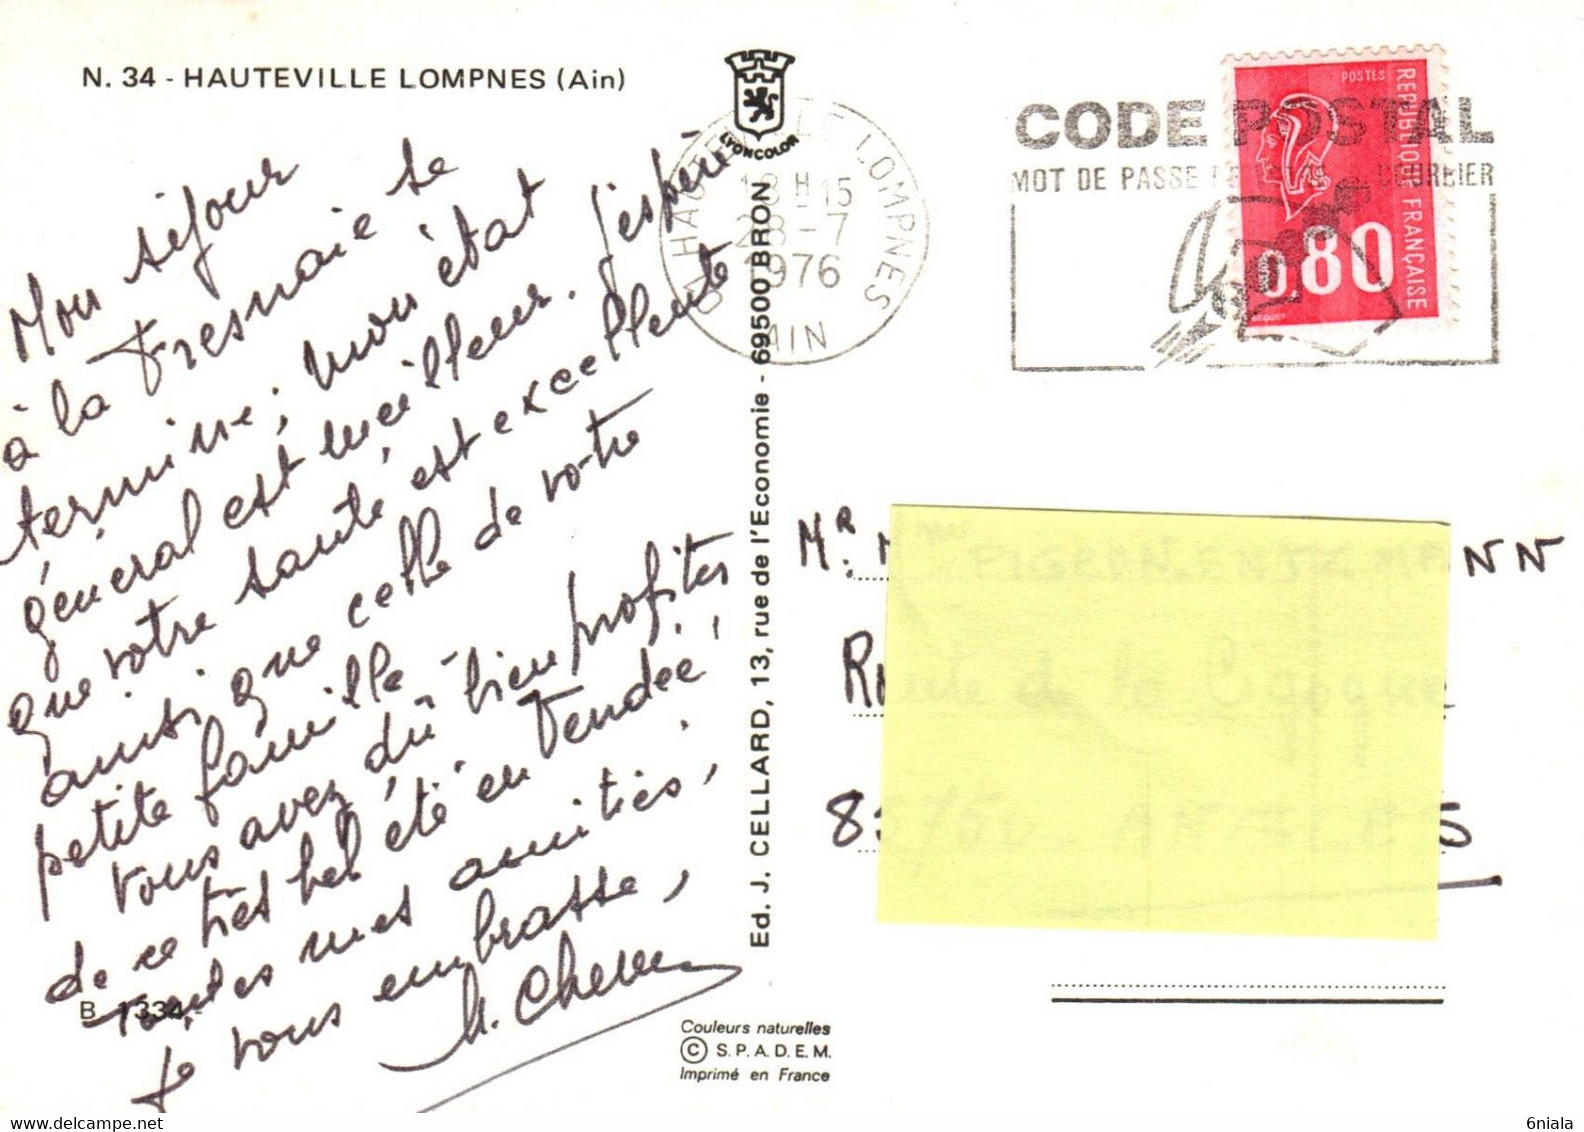 N. 34 - HAUTEVILLE LOMPNES (Ain)
Mon séjour
à la Fresnaie se
termine; mon état
général est meilleur. J'espère
que votre santé est excellente
ainsi que celle de votre
petite famille -
vous avez dû bien profiter
de ce très bel été en Vendée!
Toutes mes amitiés,
Je vous embrasse,
B 1334
LYONCOLOR
Ed. J. CELLARD, 13, rue de l'Economie - 69500 BRON
Couleurs naturelles
© S.P.A.D.E.M.
Imprimé en France
HAUTEVILLE LOMPNES
18H15
28-7
1976
AIN
CODE POSTAL
MOT DE PASSE COURRIER
POSTES
REPUBLIQUE FRANÇAISE
0.80
BEQUET
MR
NN
Route de la
6niala